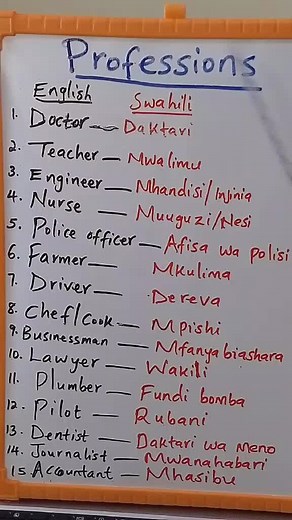 Professions
English Swahili
1. Doctor — Daktari
2. Teacher — Mwalimu
3. Engineer — Mhandisi/Injinia
4. Nurse — Muuguzi/Nesi
5. Police officer — Afisa wa polisi
6. Farmer — Mkulima
7. Driver — Dereva
8. Chef/Cook — Mpishi
9. Businessman — Mfanyabiashara
10. Lawyer — Wakili
11. Plumber — Fundi bomba
12. Pilot — Rubani
13. Dentist — Daktari wa Meno
14. Journalist — Mwanahabari
15. Accountant — Mhasibu